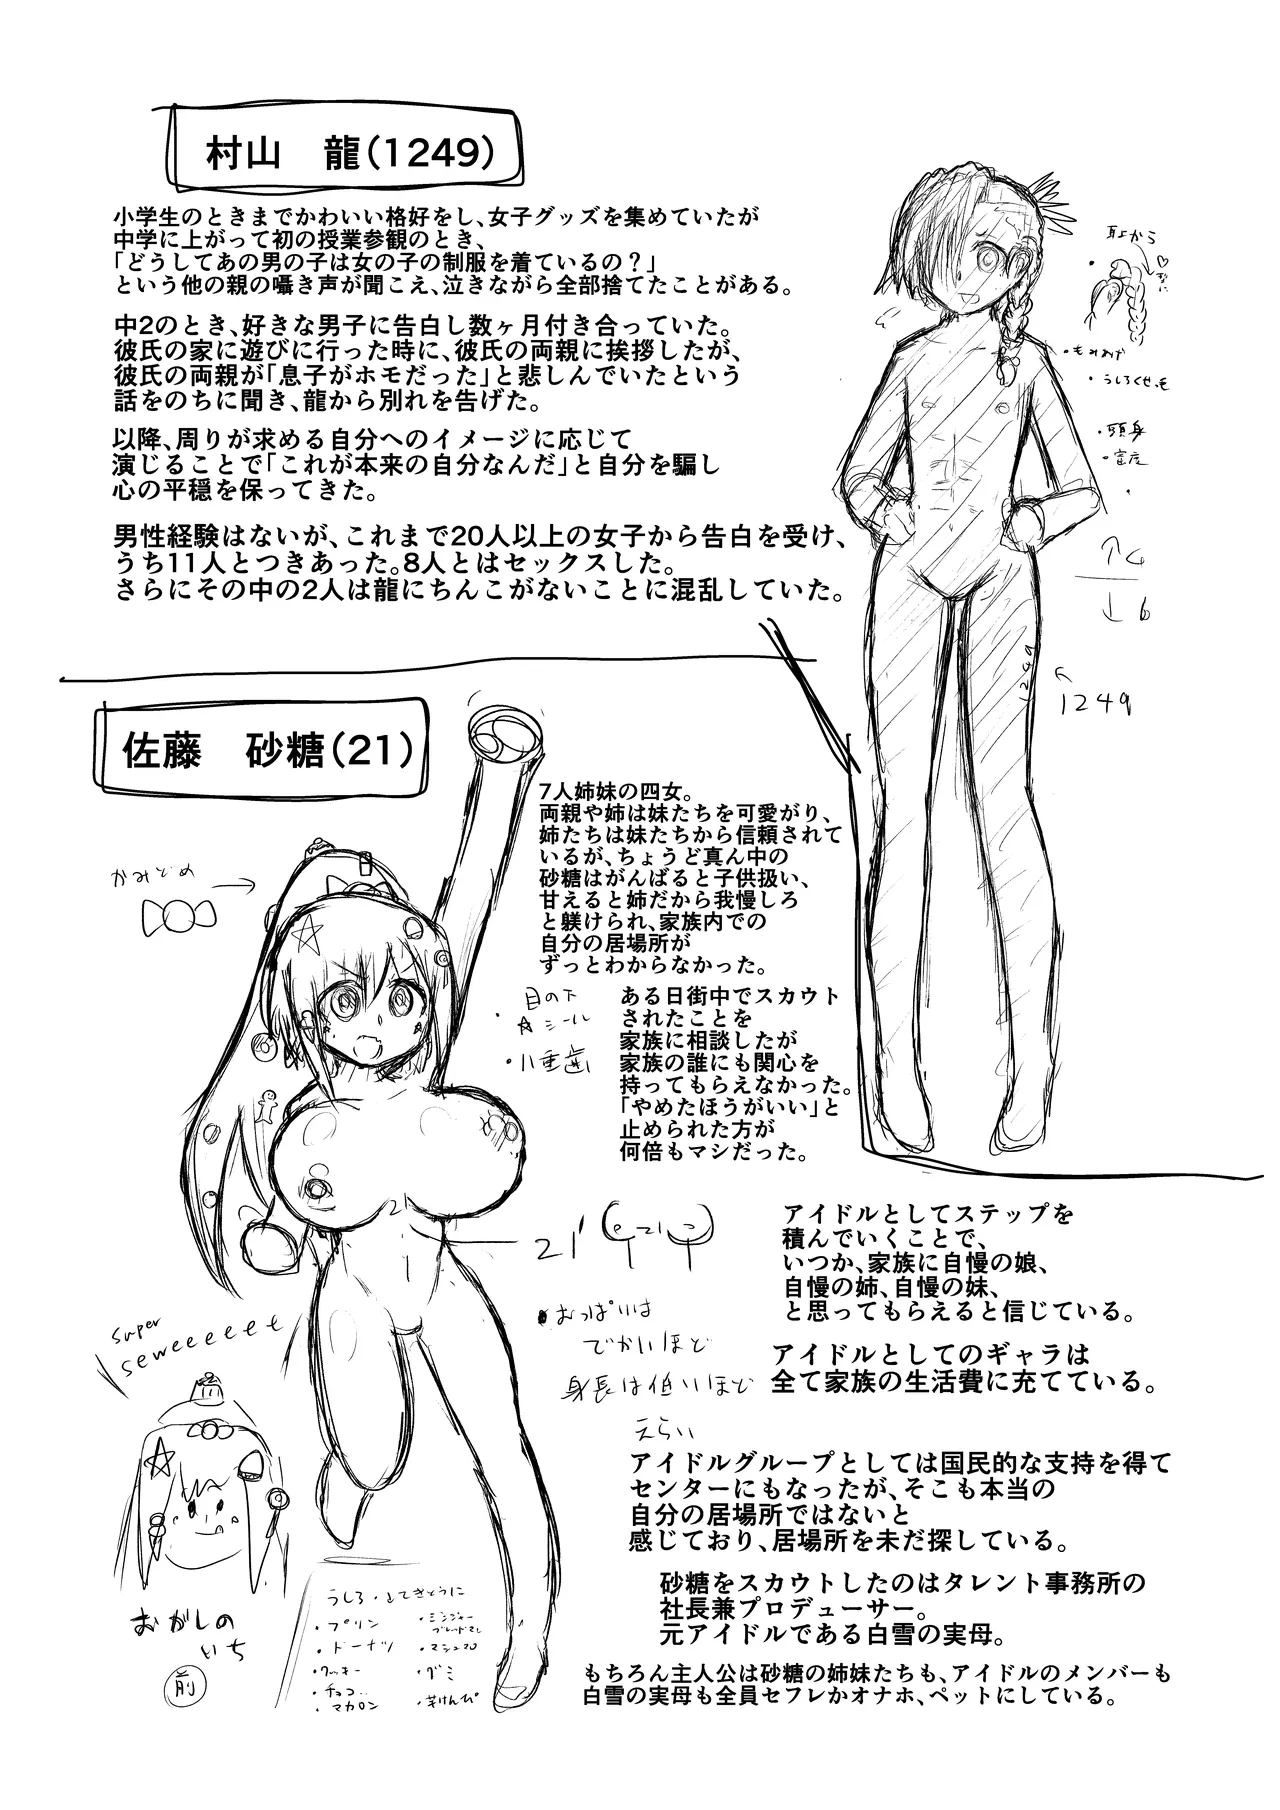 村山　龍(1249)
小学生のときまでかわいい格好をし、女子グッズを集めていたが
中学に上がって初の授業参観のとき、
「どうしてあの男の子は女の子の制服を着ているの？」
という他の親の囁き声が聞こえ、泣きながら全部捨てたことがある。
中2のとき、好きな男子に告白し数ヶ月付き合っていた。
彼氏の家に遊びに行った時に、彼氏の両親に挨拶したが、
彼氏の両親が「息子がホモだった」と悲しんでいたという
話をのちに聞き、龍から別れを告げた。
以降、周りが求める自分へのイメージに応じて
演じることで「これが本来の自分なんだ」と自分を騙し
心の平穏を保ってきた。
男性経験はないが、これまで20人以上の女子から告白を受け、
うち11人とつきあった。8人とはセックスした。
さらにその中の2人は龍にちんこがないことに混乱していた。
耳上から
・もみあげ
・うしろくせっ毛
・頭身
・密度
↑4
↓6
1249
1249
佐藤　砂糖(21)
7人姉妹の四女。
両親や姉は妹たちを可愛がり、
姉たちは妹たちから信頼されて
いるが、ちょうど真ん中の
砂糖はがんばると子供扱い、
甘えると姉だから我慢しろ
と躾けられ、家族内での
自分の居場所が
ずっとわからなかった。
かみどめ
・目の下
☆シール
・八重歯
ある日街中でスカウト
されたことを
家族に相談したが
家族の誰にも関心を
持ってもらえなかった。
「やめたほうがいい」と
止められた方が
何倍もマシだった。
21
21
アイドルとしてステップを
積んでいくことで、
いつか、家族に自慢の娘、
自慢の姉、自慢の妹、
と思ってもらえると信じている。
・おっぱいは
でかいほど
身長は低いほど
えらい
アイドルとしてのギャラは
全て家族の生活費に充てている。
super
seweeeeet
アイドルグループとしては国民的な支持を得て
センターにもなったが、そこも本当の
自分の居場所ではないと
感じており、居場所を未だ探している。
砂糖をスカウトしたのはタレント事務所の
社長兼プロデューサー。
元アイドルである白雪の実母。
もちろん主人公は砂糖の姉妹たちも、アイドルのメンバーも
白雪の実母も全員セフレかオナホ、ペットにしている。
おかしの
いち
前
うしろ・よてきとうに
・プリン
・ドーナツ
・クッキー
・チョコ
・マカロン
・ジンジャー
ブレッドマン
・マシュマロ
・グミ
・芋けんぴ